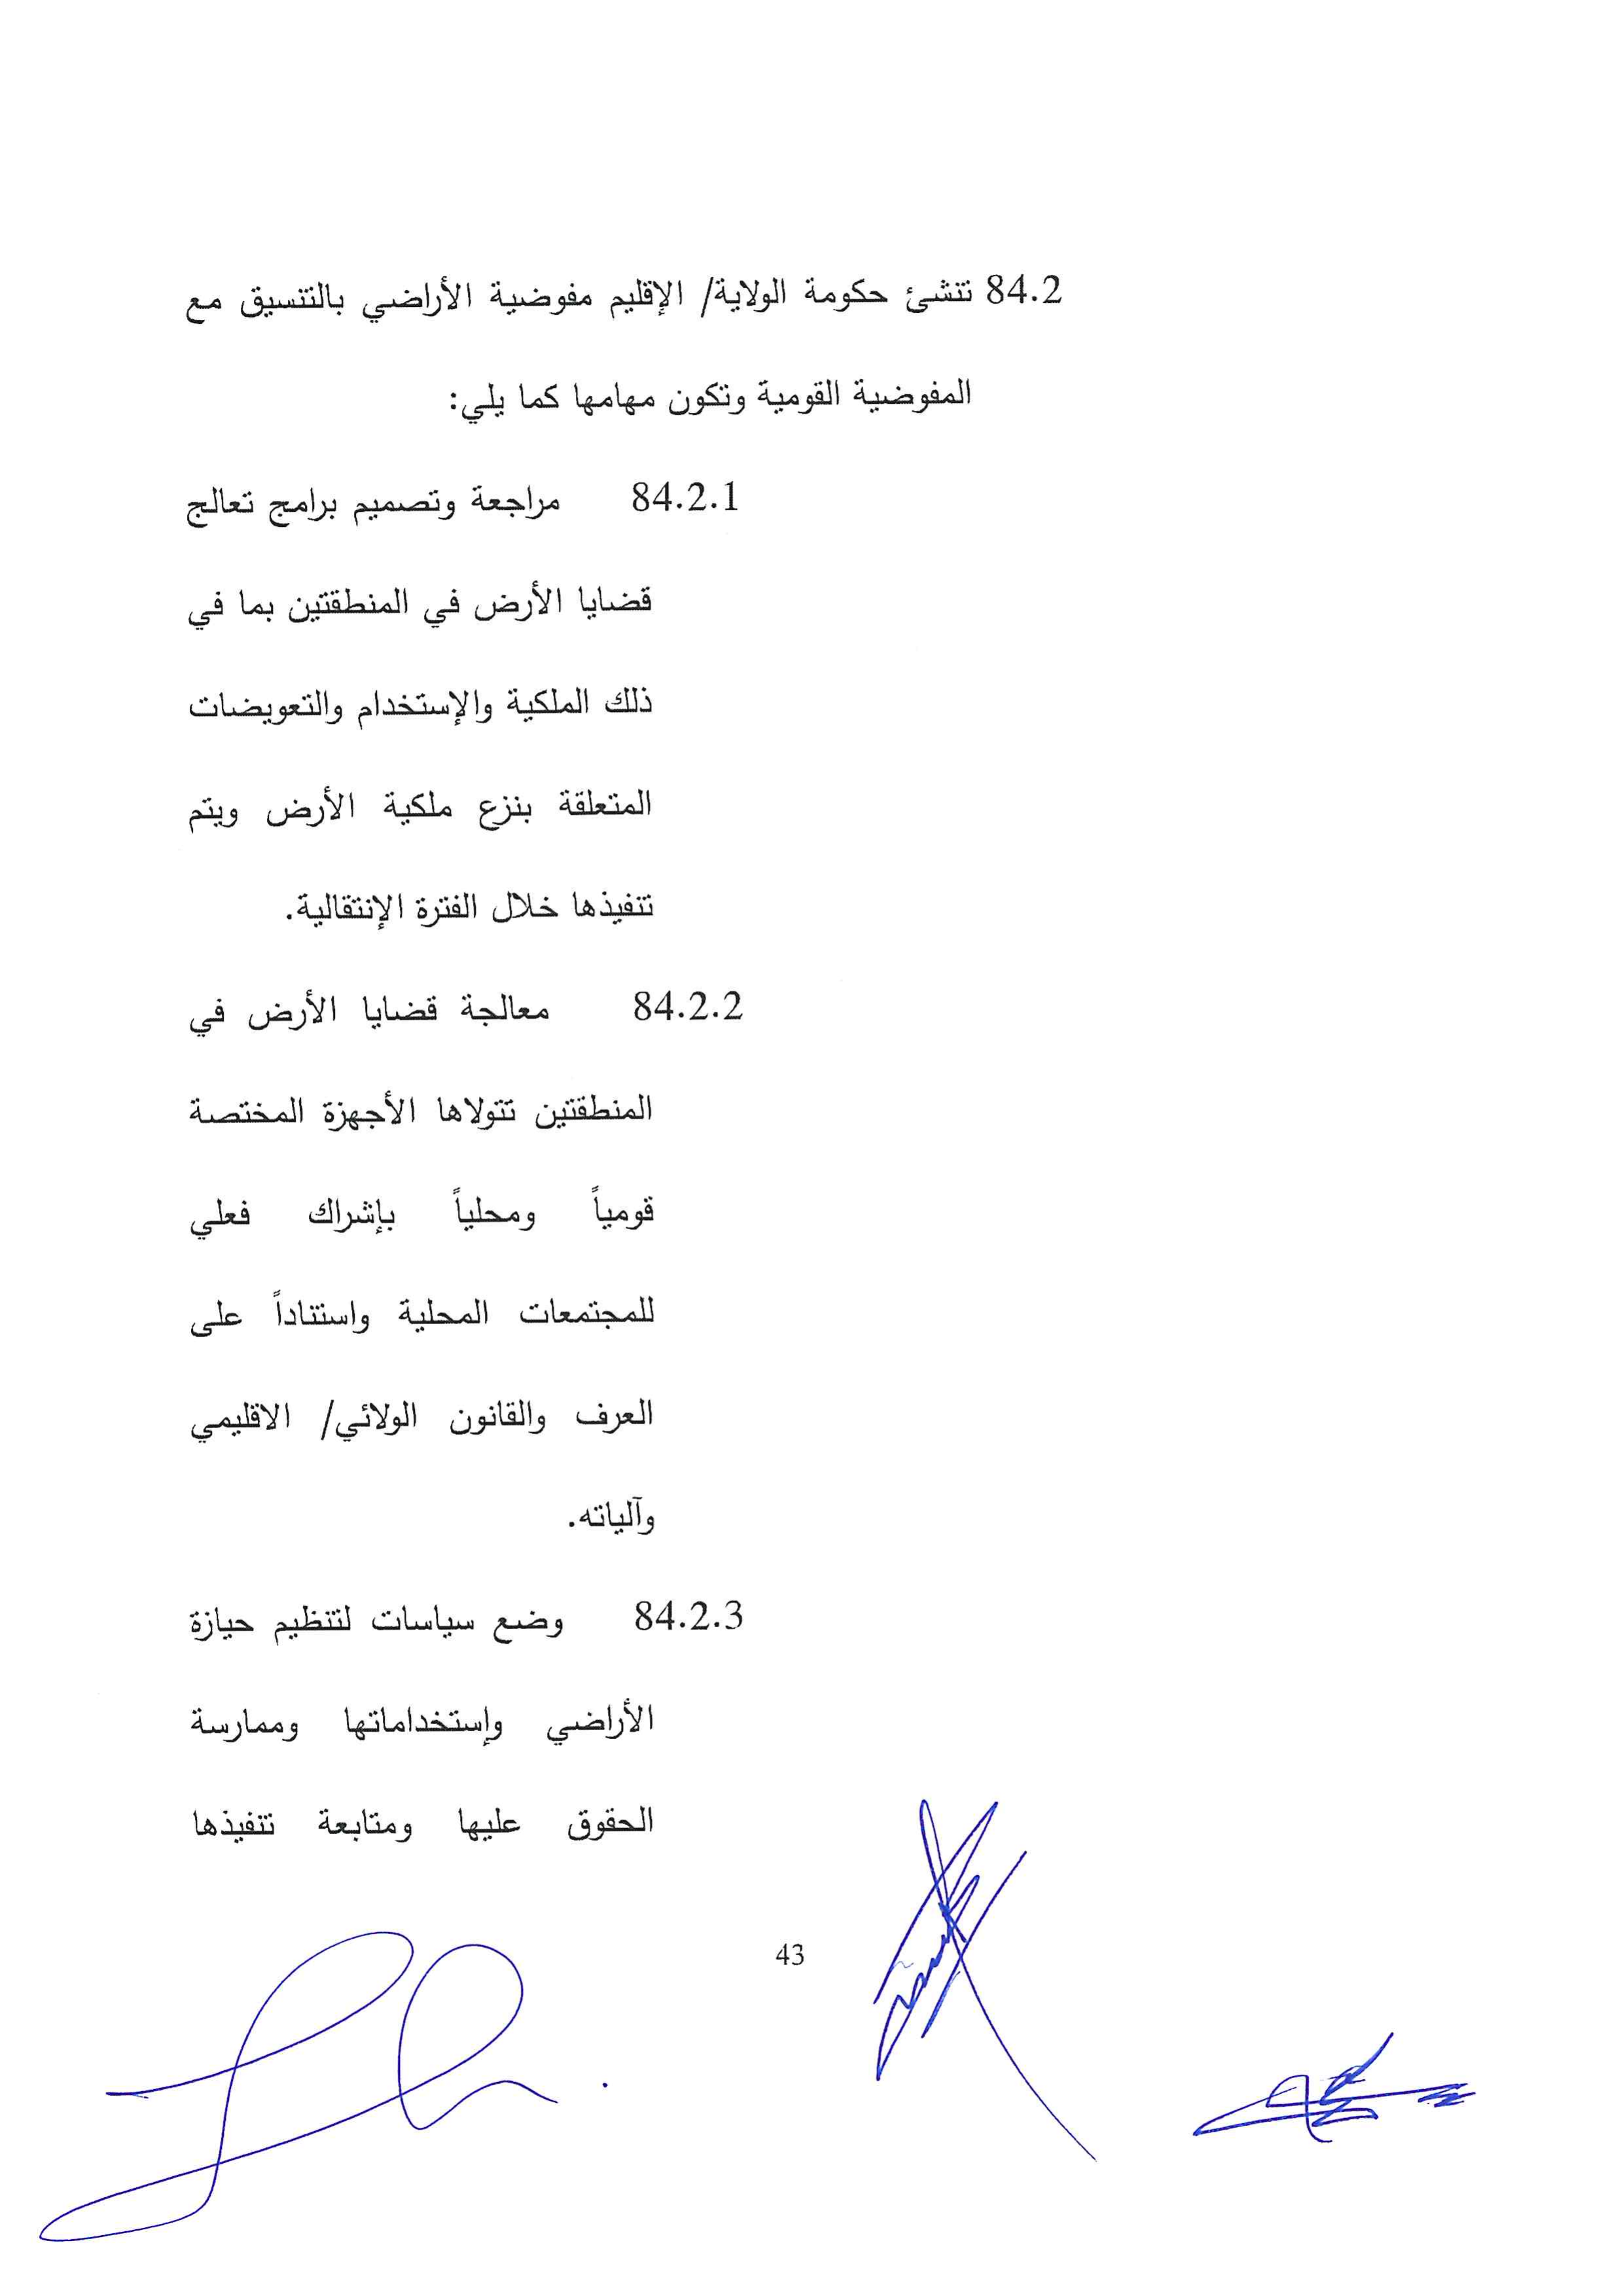 84.2 تنشئ حكومة الولاية/ الإقليم مفوضية الأراضي بالتنسيق مع
المفوضية القومية وتكون مهامها كما يلي:
84.2.1 مراجعة وتصميم برامج تعالج
قضايا الأرض في المنطقتين بما في
ذلك الملكية والإستخدام والتعويضات
المتعلقة بنزع ملكية الأرض ويتم
تنفيذها خلال الفترة الإنتقالية.
84.2.2 معالجة قضايا الأرض في
المنطقتين تتولاها الأجهزة المختصة
قومياً ومحلياً بإشراك فعلي
للمجتمعات المحلية واستناداً على
العرف والقانون الولائي/ الاقليمي
وآلياته.
84.2.3 وضع سياسات لتنظيم حيازة
الأراضي وإستخداماتها وممارسة
الحقوق عليها ومتابعة تنفيذها
43